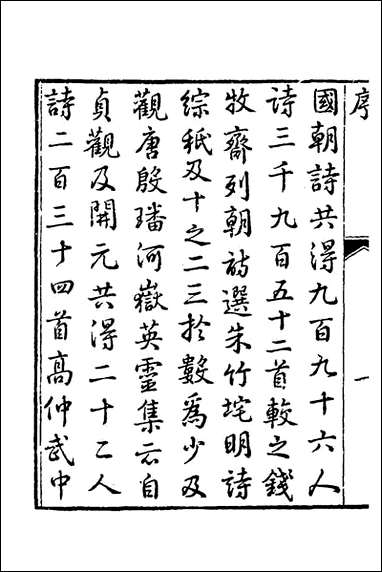 序
一
國朝詩共得九百九十六人
詩三千九百五十二首較之錢
牧齋列朝詩選朱竹垞明詩
綜秖及十之二三扵數爲少及
觀唐殷璠河嶽英靈集云自
貞觀及開元共得二十二人
詩二百三十四首高仲武中